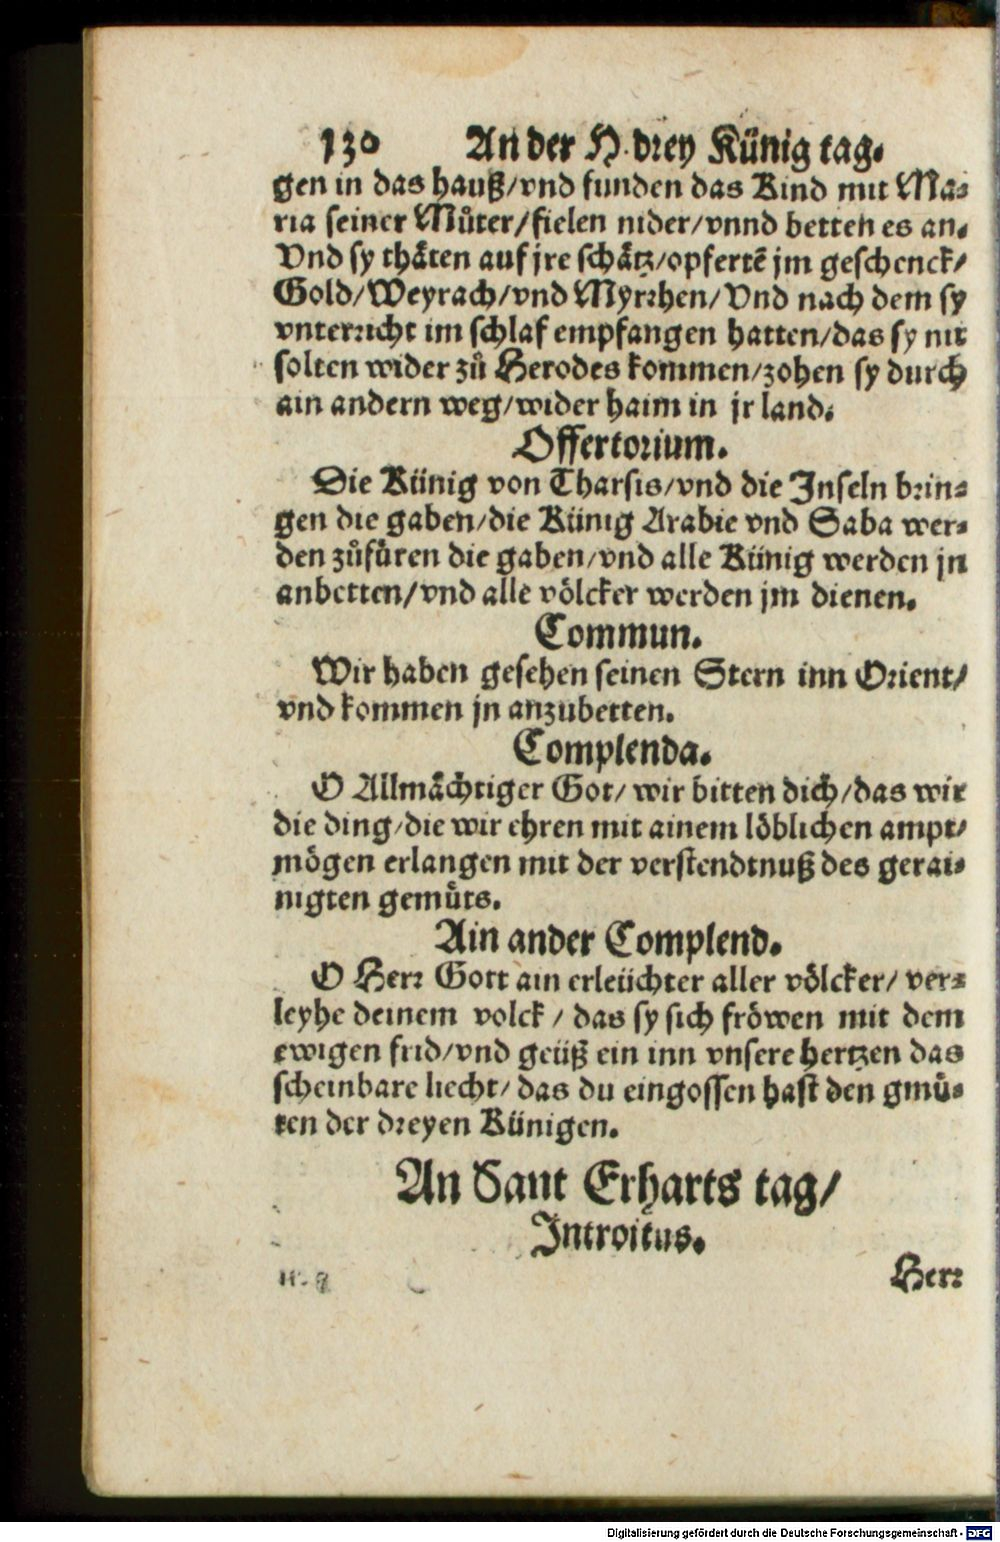 130 An der H. drey Künig tag.
gen in das hauß/vnd funden das Kind mit Ma-
ria seiner Můter/fielen nider/vnnd betten es an.
Vnd sy thäten auf jre schätz/opfertẽ jm geschenck/
Gold/Weyrach/vnd Myrrhen/Vnd nach dem sy
vnterricht im schlaf empfangen hatten/das sy nit
solten wider zů Herodes kommen/zohen sy durch
ain andern weg/wider haim in jr land.
Offertorium.
Die Künig von Tharsis/vnd die Inseln brin-
gen die gaben/die Künig Arabie vnd Saba wer-
den zůfüren die gaben/vnd alle Künig werden jn
anbetten/vnd alle völcker werden jm dienen.
Commun.
Wir haben gesehen seinen Stern inn Orient/
vnd kommen jn anzubetten.
Complenda.
O Allmächtiger Got/ wir bitten dich/das wir
die ding/die wir ehren mit ainem löblichen ampt/
mögen erlangen mit der verstendtnuß des gerai-
nigten gemüts.
Ain ander Complend.
O Herr Gott ain erleüchter aller völcker/ ver-
leyhe deinem volck / das sy sich fröwen mit dem
ewigen frid/vnd geüß ein inn vnsere hertzen das
scheinbare liecht/ das du eingossen hast den gmü-
ten der dreyen Künigen.
An Sant Erharts tag/
Introitus.
Herr
Digitalisierung gefördert durch die Deutsche Forschungsgemeinschaft - DFG